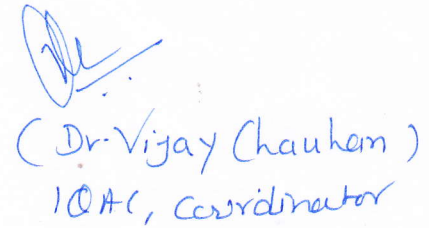 (Dr. Vijay Chauhan)
IQAC, Coordinator